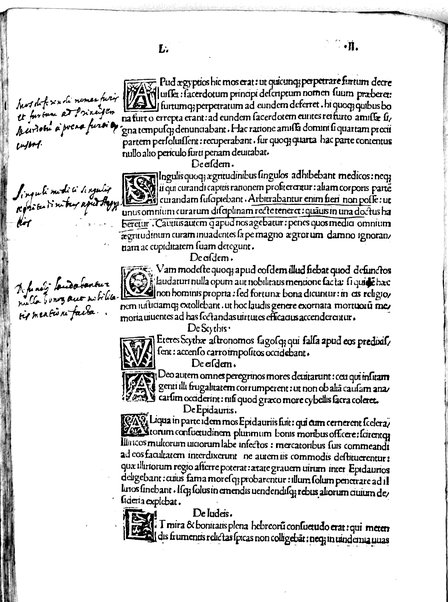 L. .II.
APud ægyptios hic mos erat: ut quicunq; perpetrare furtum decre
uisset: sacerdotum principi descriptum nomen suum præberet:
furtumq; perpetratum ad eundem deferret. hi quoq; quibus bo
na furto errepta erant: ad eundem sacerdotem euntes rei furto amissæ si
gna tempusq; denunciabant. Hac ratione amissa domini si quartam precii
partem persoluissent: recuperabant. fur quoq; quarta hac parte contentus
nullo alio periculo furti penam deuitabat.
De eisdem.
SIngulis quoq; ægritudinibus singulos adhibebant medicos: neq;
ii qui curandi captis rationem profiterentur: aliam corporis partē
curandam suscipiebant. Arbitrabantur enim fieri non posse: ut
unus omnium curarum disciplinam recte teneret: quāuis in una doctus ha
beretur. Cautius autem q̄ apud nos agebatur: penes quos medici omnium
ægritudinum curam inuadentes sæpe magno ægrorum damno ignoran/
tiam ac cupiditatem suam detegunt.
De eisdem.
QVam modeste quoq; apud eosdem illud fiebat quod defunctos
laudaturi nulla opum aut nobilitatis mentione facta: si quidem hæc
non hominis propria: sed fortunæ bona dicuntur: in eis religio/
nem iustitiamq; extollebant. ut hoc laudis genere exornata mortuorū me/
moria uiuentes ad has sectandas uirtutes efficacius accenderentur.
De Scythis.
VEteres Scythæ astronomos sagosq; qui falsa apud eos prædixis/
sent: accenso carro impositos occidebant.
De eisdem.
ADeo autem omnes peregrinos mores deuitarunt: ceu qui insitam
genti illi frugalitatem corrumperent: ut non ob aliā causam ana/
carsim occiderint: nisi quod græco more cybellis sacra coleret.
De Epidauriis.
ALiqua in parte idem mos Epidauriis fuit: qui cum cernerent scelera/
torum consuetudinem plurimum bonis moribus officere: ferrentq;
Illiricos multorum uiciorum labe infectos: mercatoribus suis commeandi
ad eos facultatem interdixerunt ne autem iis commodis destituerentur:
quæ illiriorum regio afferre poterat: ætate grauem uirum inter Epidaurios
deligebant: cuius fama moresq; probarentur: illum solum penetrare ad il/
lyrios sinebant. Isq; solus in emendis uendendisq; rebus aliorum ciuium de/
sideria explebat.
De Iudeis.
ET mira & bonitatis plena hebreorū consuetudo erat: qui meten
dis frumentis relictas spicas non colligebāt: neq; in uindemia uuas
Singuli medici singulis